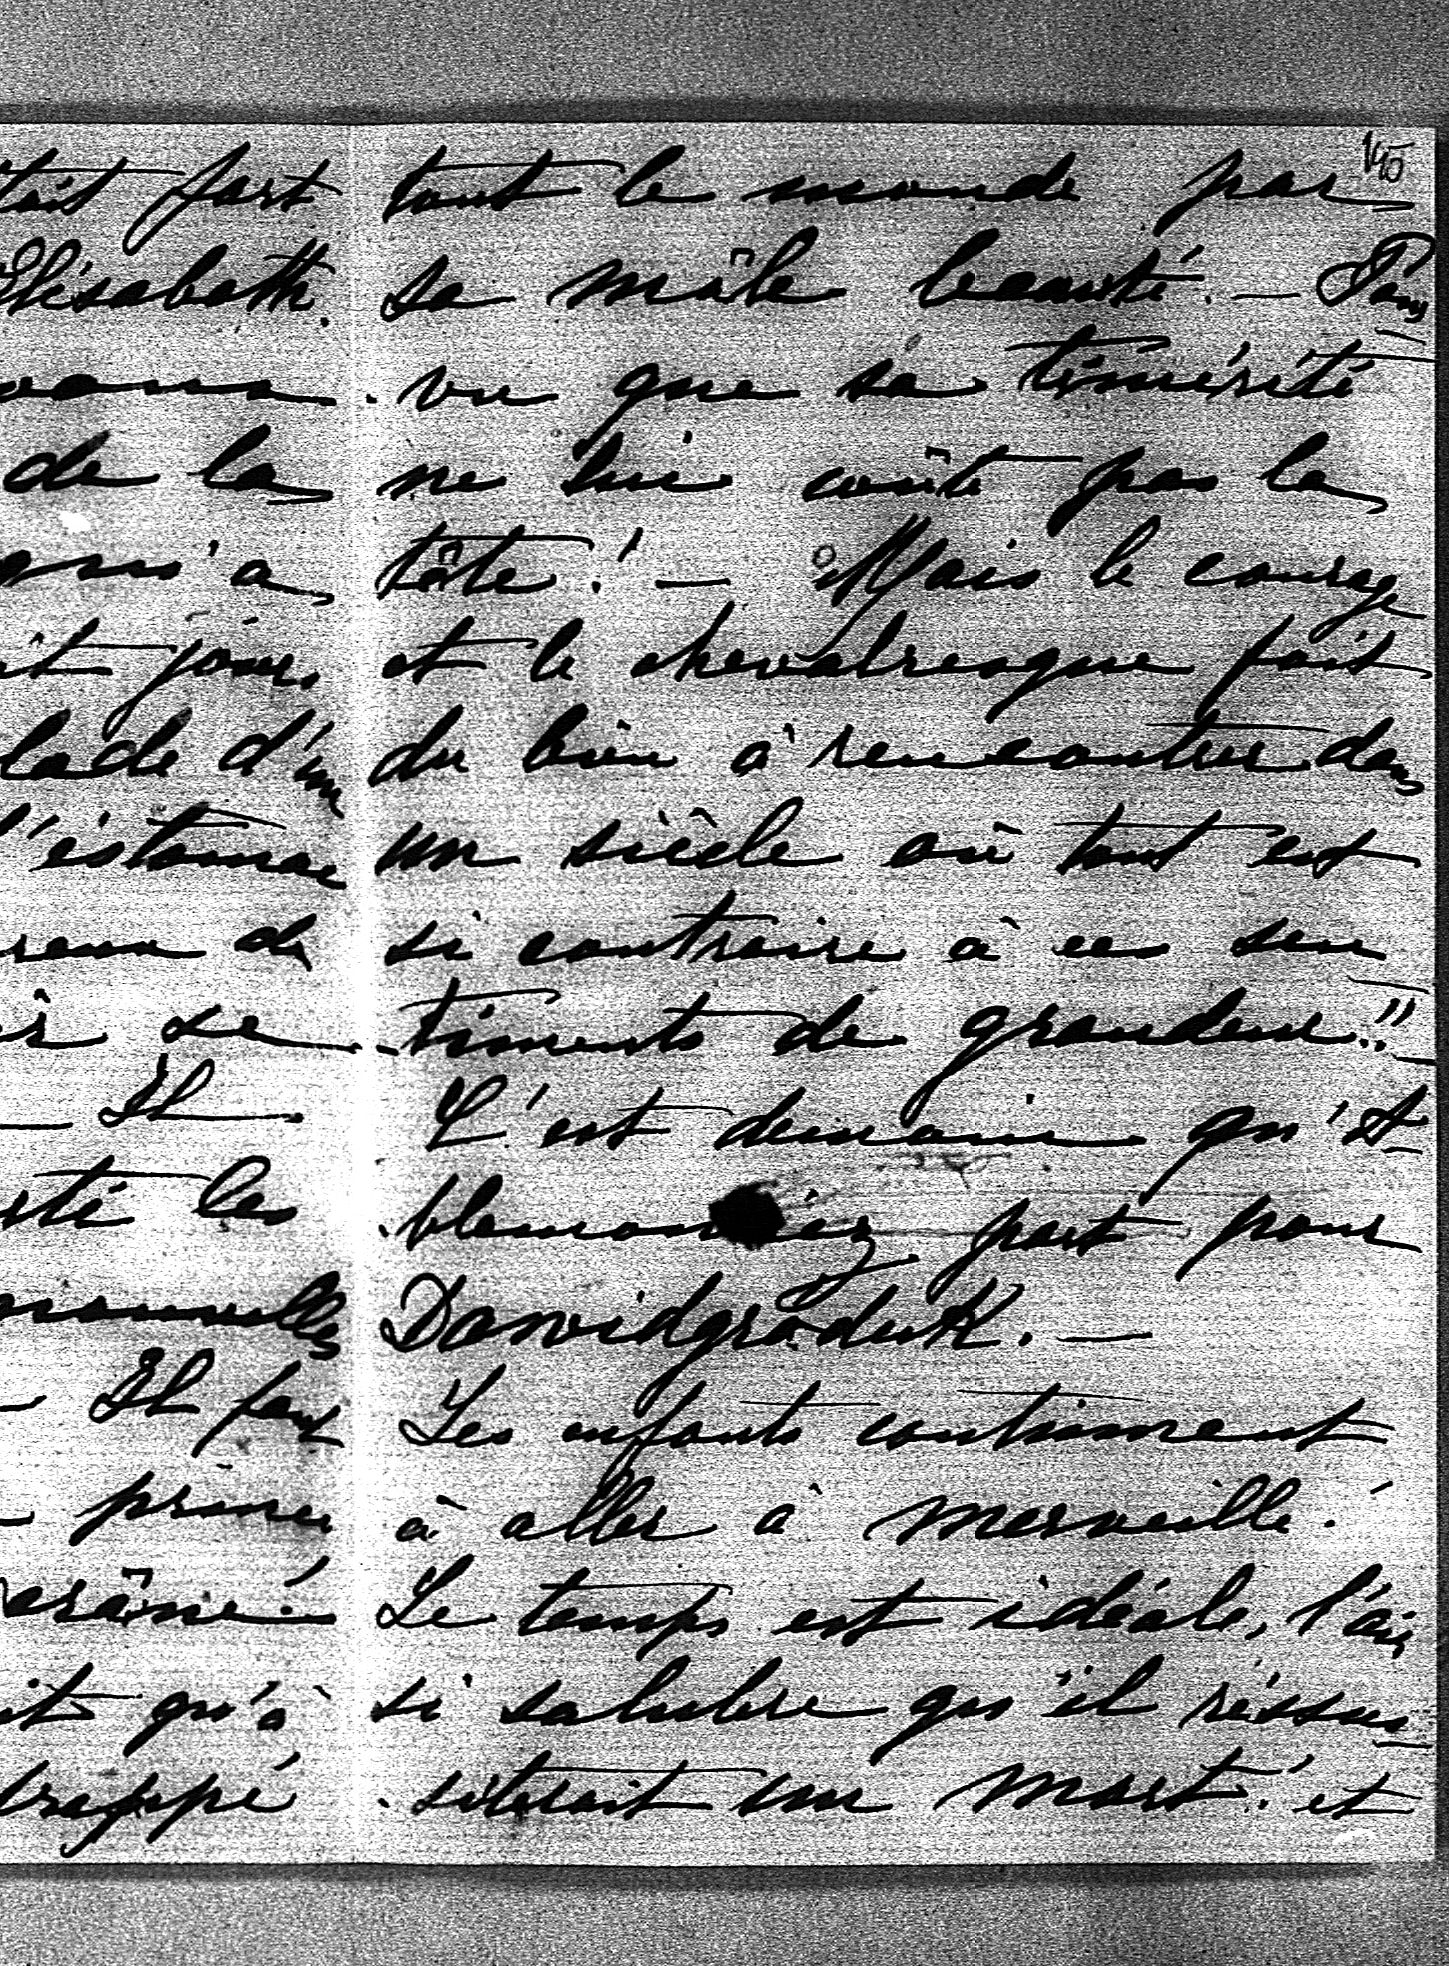 145
tait fort
Elisabeth.
de la
qu'a
it jours
lade d'un
l'éstomac
reux de
se
Il
sté les
Il faut
prince
crâne!
it qu'à
frappé
tout le monde par
sa mâle beauté. — Pour
vu que sa témérité
ne lui coûte pas la
tête! — Mais le courage
et le chevalresque fait
du bien à rencontrer dans
un siècle où tout est
si contraire à ces sen
timents de grandeur!!
C'est demain qu'
part pour
Dawidgrodek. —
Les enfants continuent
à aller à merveille!
Le temps est idéale, l'air
si salubre qu'il réssus
siterait un mort! et